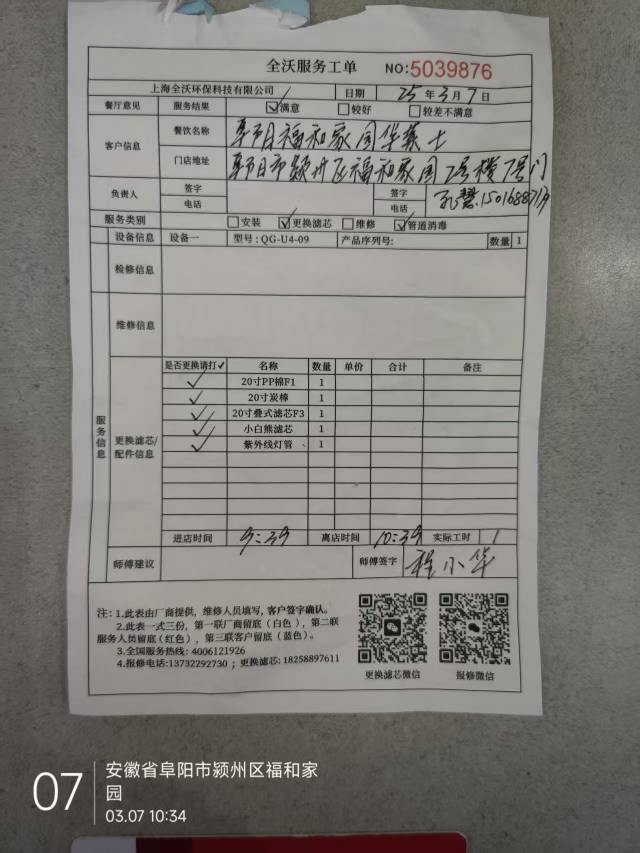 全沃服务工单 NO:5039876
上海全沃环保科技有限公司 日期 25年3月7日
餐厅意见 服务结果 ☑满意 □较好 □较差不满意
客户信息 餐饮名称 阜阳福和家园华莱士
门店地址 阜阳市颍州区福和家园7号楼7号门
负责人 签字 电话 签字 电话
服务类别 □安装 ☑更换滤芯 □维修 ☑管道消毒
设备信息 设备一 型号:QG-U4-09 产品序列号: 数量 1
检修信息
服务信息
维修信息
更换滤芯/配件信息
是否更换请打✓ 名称 数量 单价 合计 备注
✓ 20寸PP棉F1 1
✓ 20寸炭棒 1
✓ 20寸叠式滤芯F3 1
✓ 小白熊滤芯 1
✓ 紫外线灯管 1
进店时间 9:39 离店时间 10:39 实际工时 1
师傅建议 师傅签字 程小华
注:1.此表由厂商提供,维修人员填写,客户签字确认。
2.此表一式三份,第一联厂商留底(白色),第二联
服务人员留底(红色),第三联客户留底(蓝色)。
3.全国服务热线:4006121926
4.报修电话:13732292730;更换滤芯:18258897611
更换滤芯微信 报修微信
07
安徽省阜阳市颍州区福和家
园
03.07 10:34